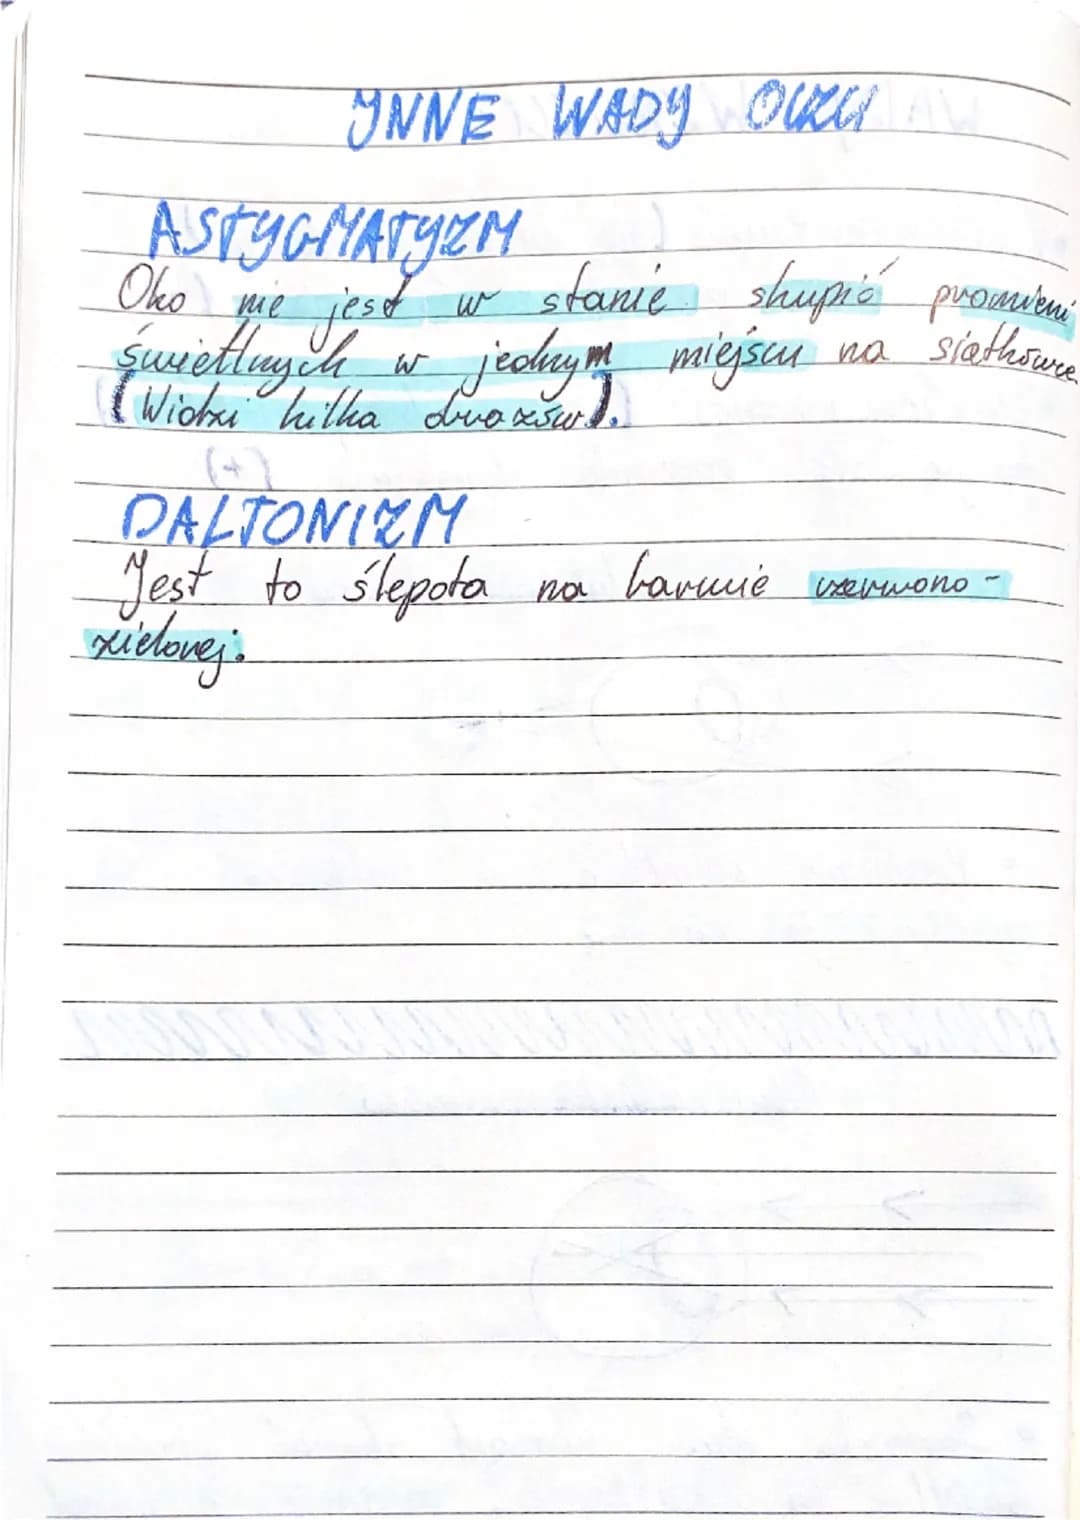 INNE WADY OCZU
ASTYGMATYZM
Oko nie jest w stanie skupić promieni
świetlnych w jednym miejscu na siatkówce.
(Widzi kilka obrazów).
DALTONIZM
Jest to ślepota na barwie czerwono-
zielonej.